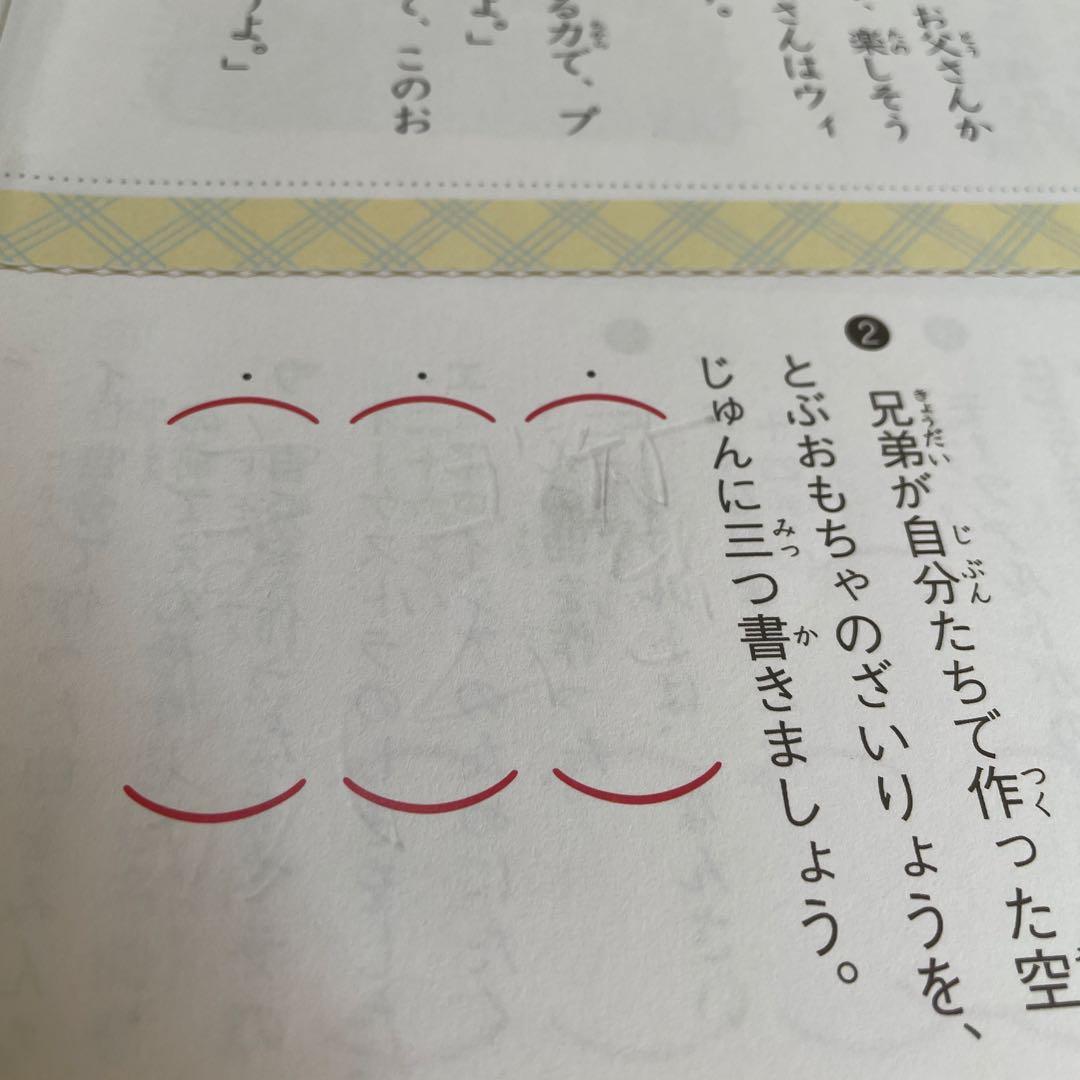 お父さんか
、楽しそう
さんはウィ
。
る力で、プ
よ。」
て、このお
よ。」
❷ 兄弟が自分たちで作った空
とぶおもちゃのざいりょうを、
じゅんに三つ書きましょう。